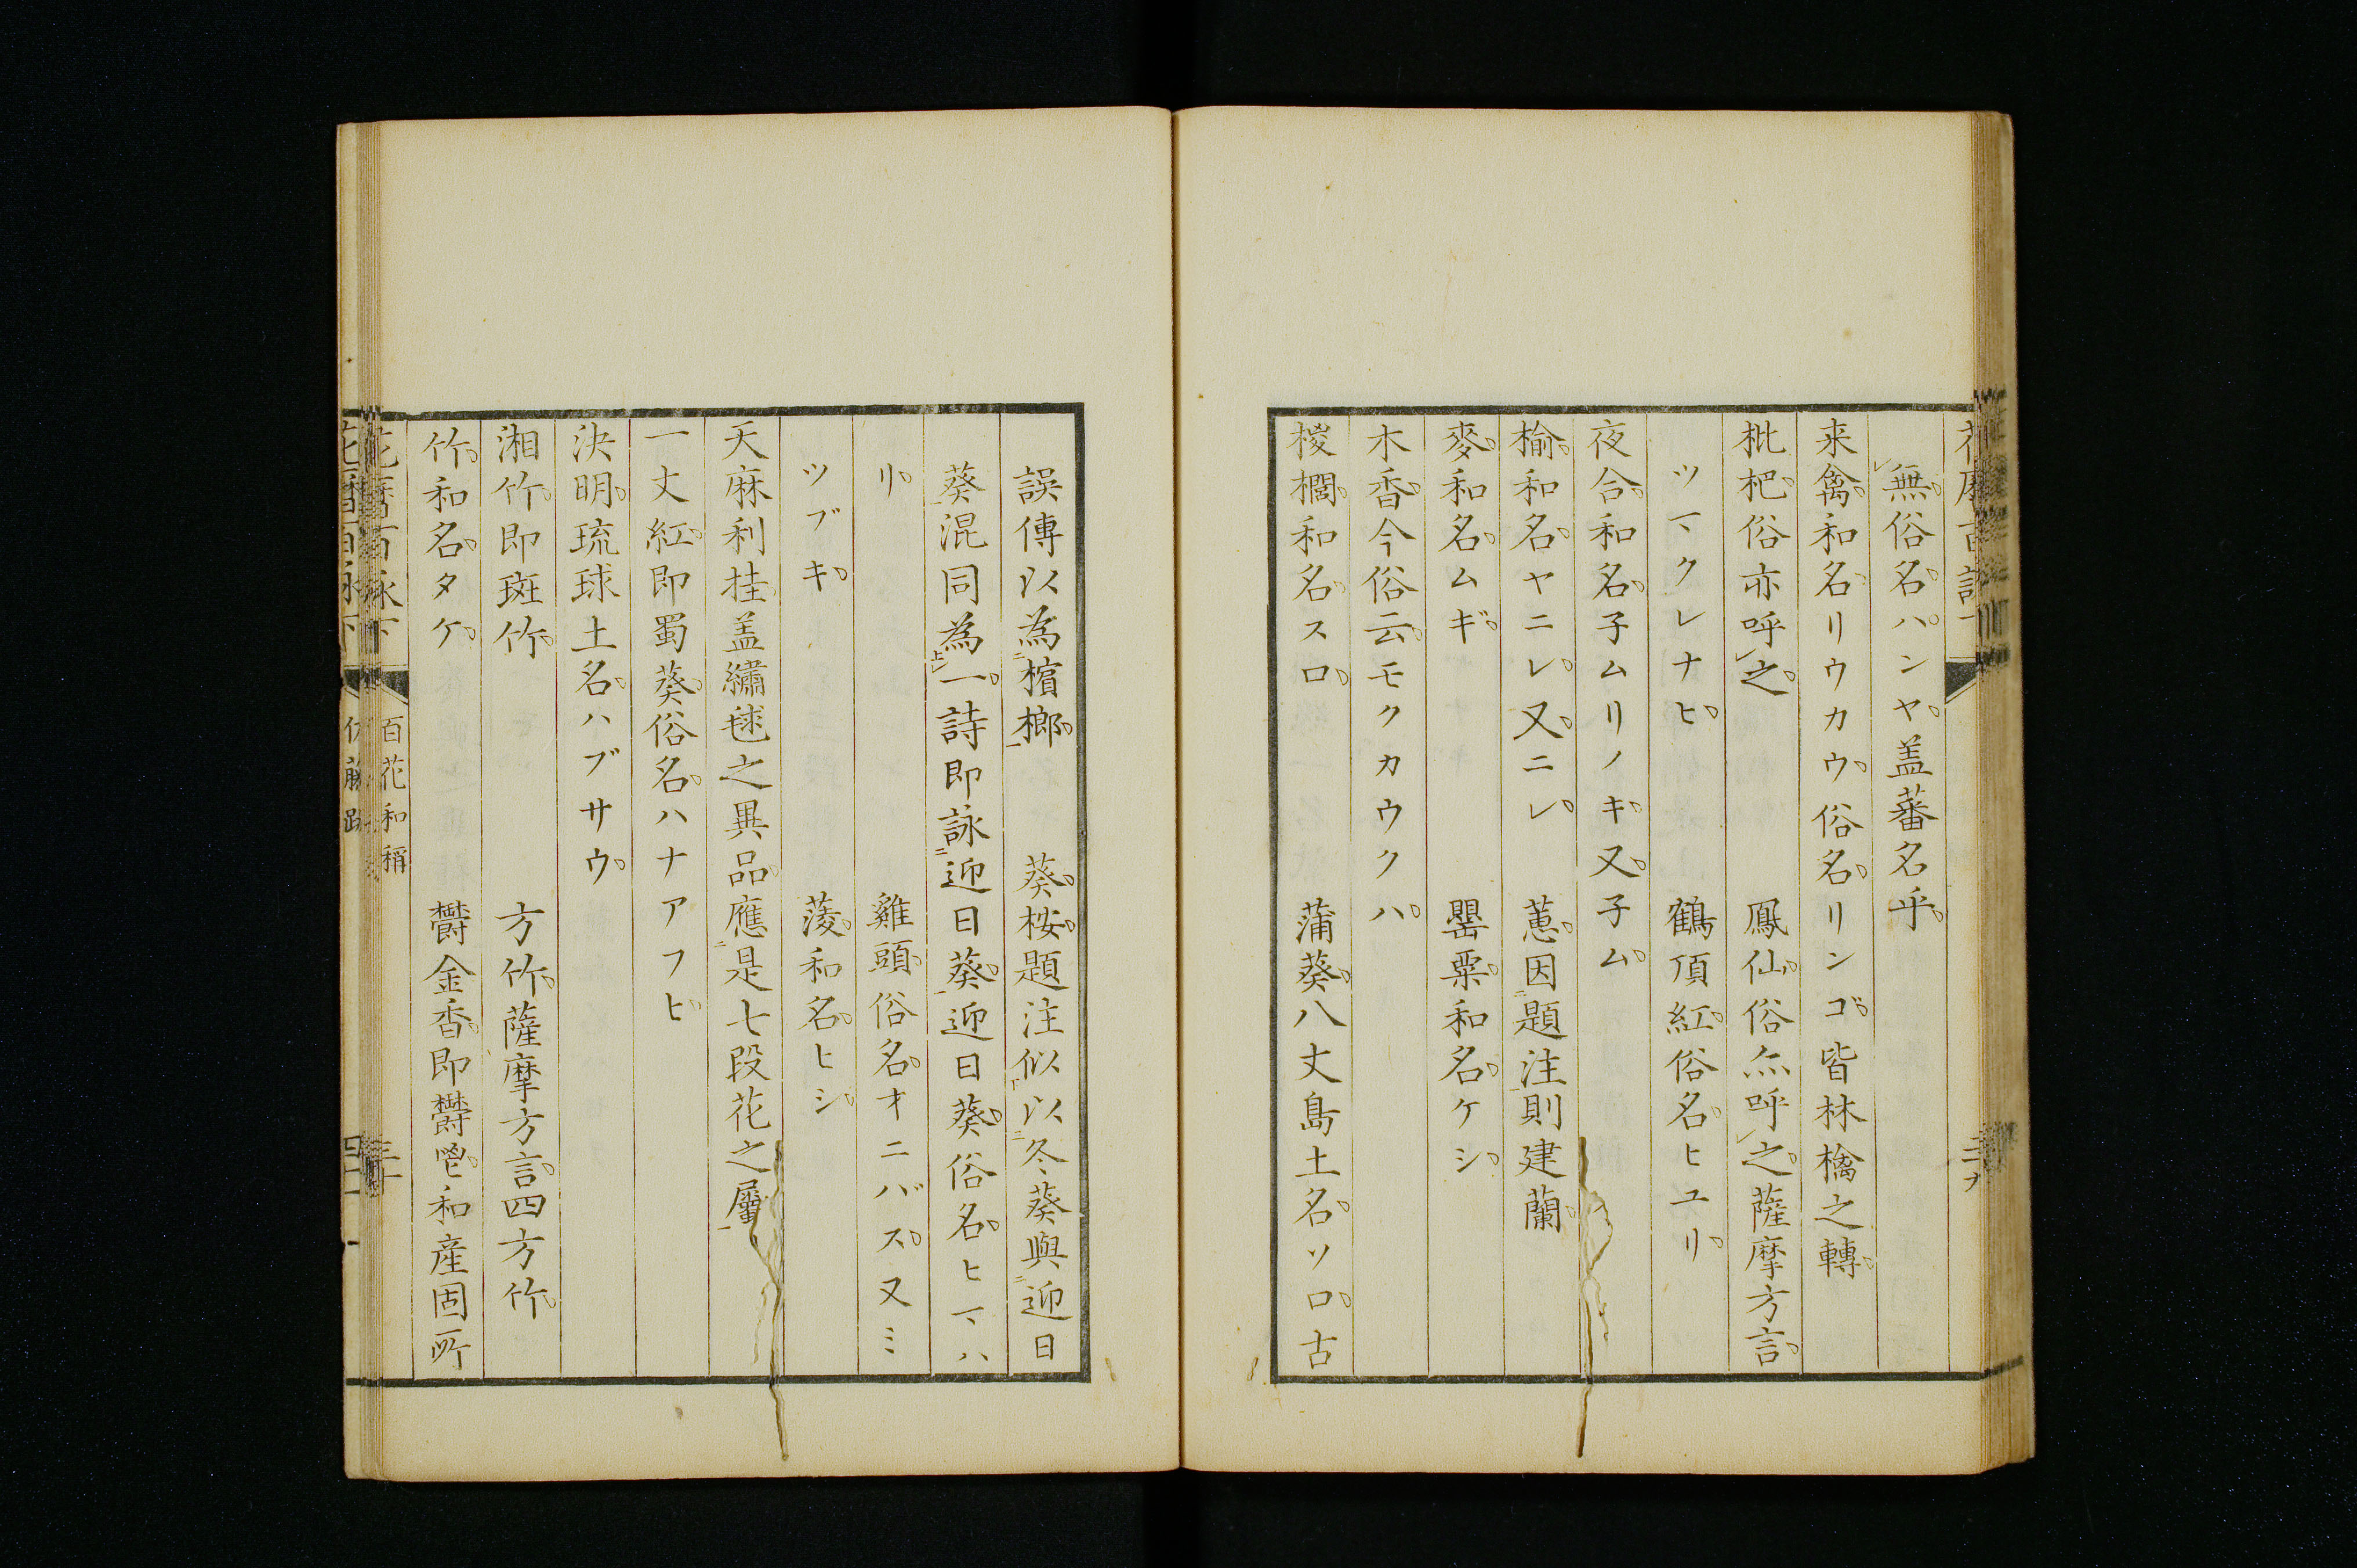 無俗名パンヤ盖蕃名乎
来禽和名リウカウ俗名リンゴ皆林檎之轉
枇杷俗亦呼之　鳳仙俗亦呼之薩摩方言
ツマクレナヒ　鶴頂紅俗名ヒユリ
夜合和名子ムリノキ又子ム
楡和名ヤニレ又ニレ　蕙因題注則建蘭
麥和名ムギ　罌粟和名ケシ
木香今俗云モクカウクハ
椶櫚和名スロ　蒲葵八丈島土名ソロ古
誤傳以為檳榔　葵桉題注似以冬葵與迎日
葵混同為一詩即詠迎日葵迎日葵俗名ヒマハ
リ　雞頭俗名オニバス又ミ
ツブキ　蔆和名ヒシ
天麻利挂盖繡毬之異品應是七段花之屬
一丈紅即蜀葵俗名ハナアフヒ
決明琉球土名ハブサウ
湘竹即斑竹　方竹薩摩方言四方竹
竹和名タケ　欝金香即欝鬯和産固所
花暦百詠下　百花和稱